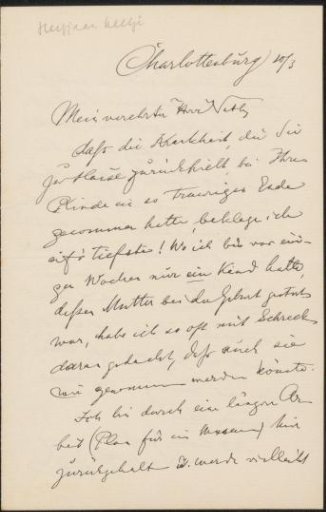 Charlottenburg 10/3
Mein verehrter Herr
daß die Krankheit, die Sie
zu Hause zurückhielt bei Ihrem
ein so trauriges Ende
genommen hatte, beklage ich
auf's tiefste! Wo ich bis vor eini-
ger Wochen nur ein Kind hatte,
dessen Mutter bei der Geburt gestorben
war, habe ich so oft mit Schrecken
daran gedacht, daß auch sie
mir genommen werden könnte.
Ich bin durch eine längere Ar-
beit (Plan für ein Museum) hier
zurückgehalten u. werde vielleicht